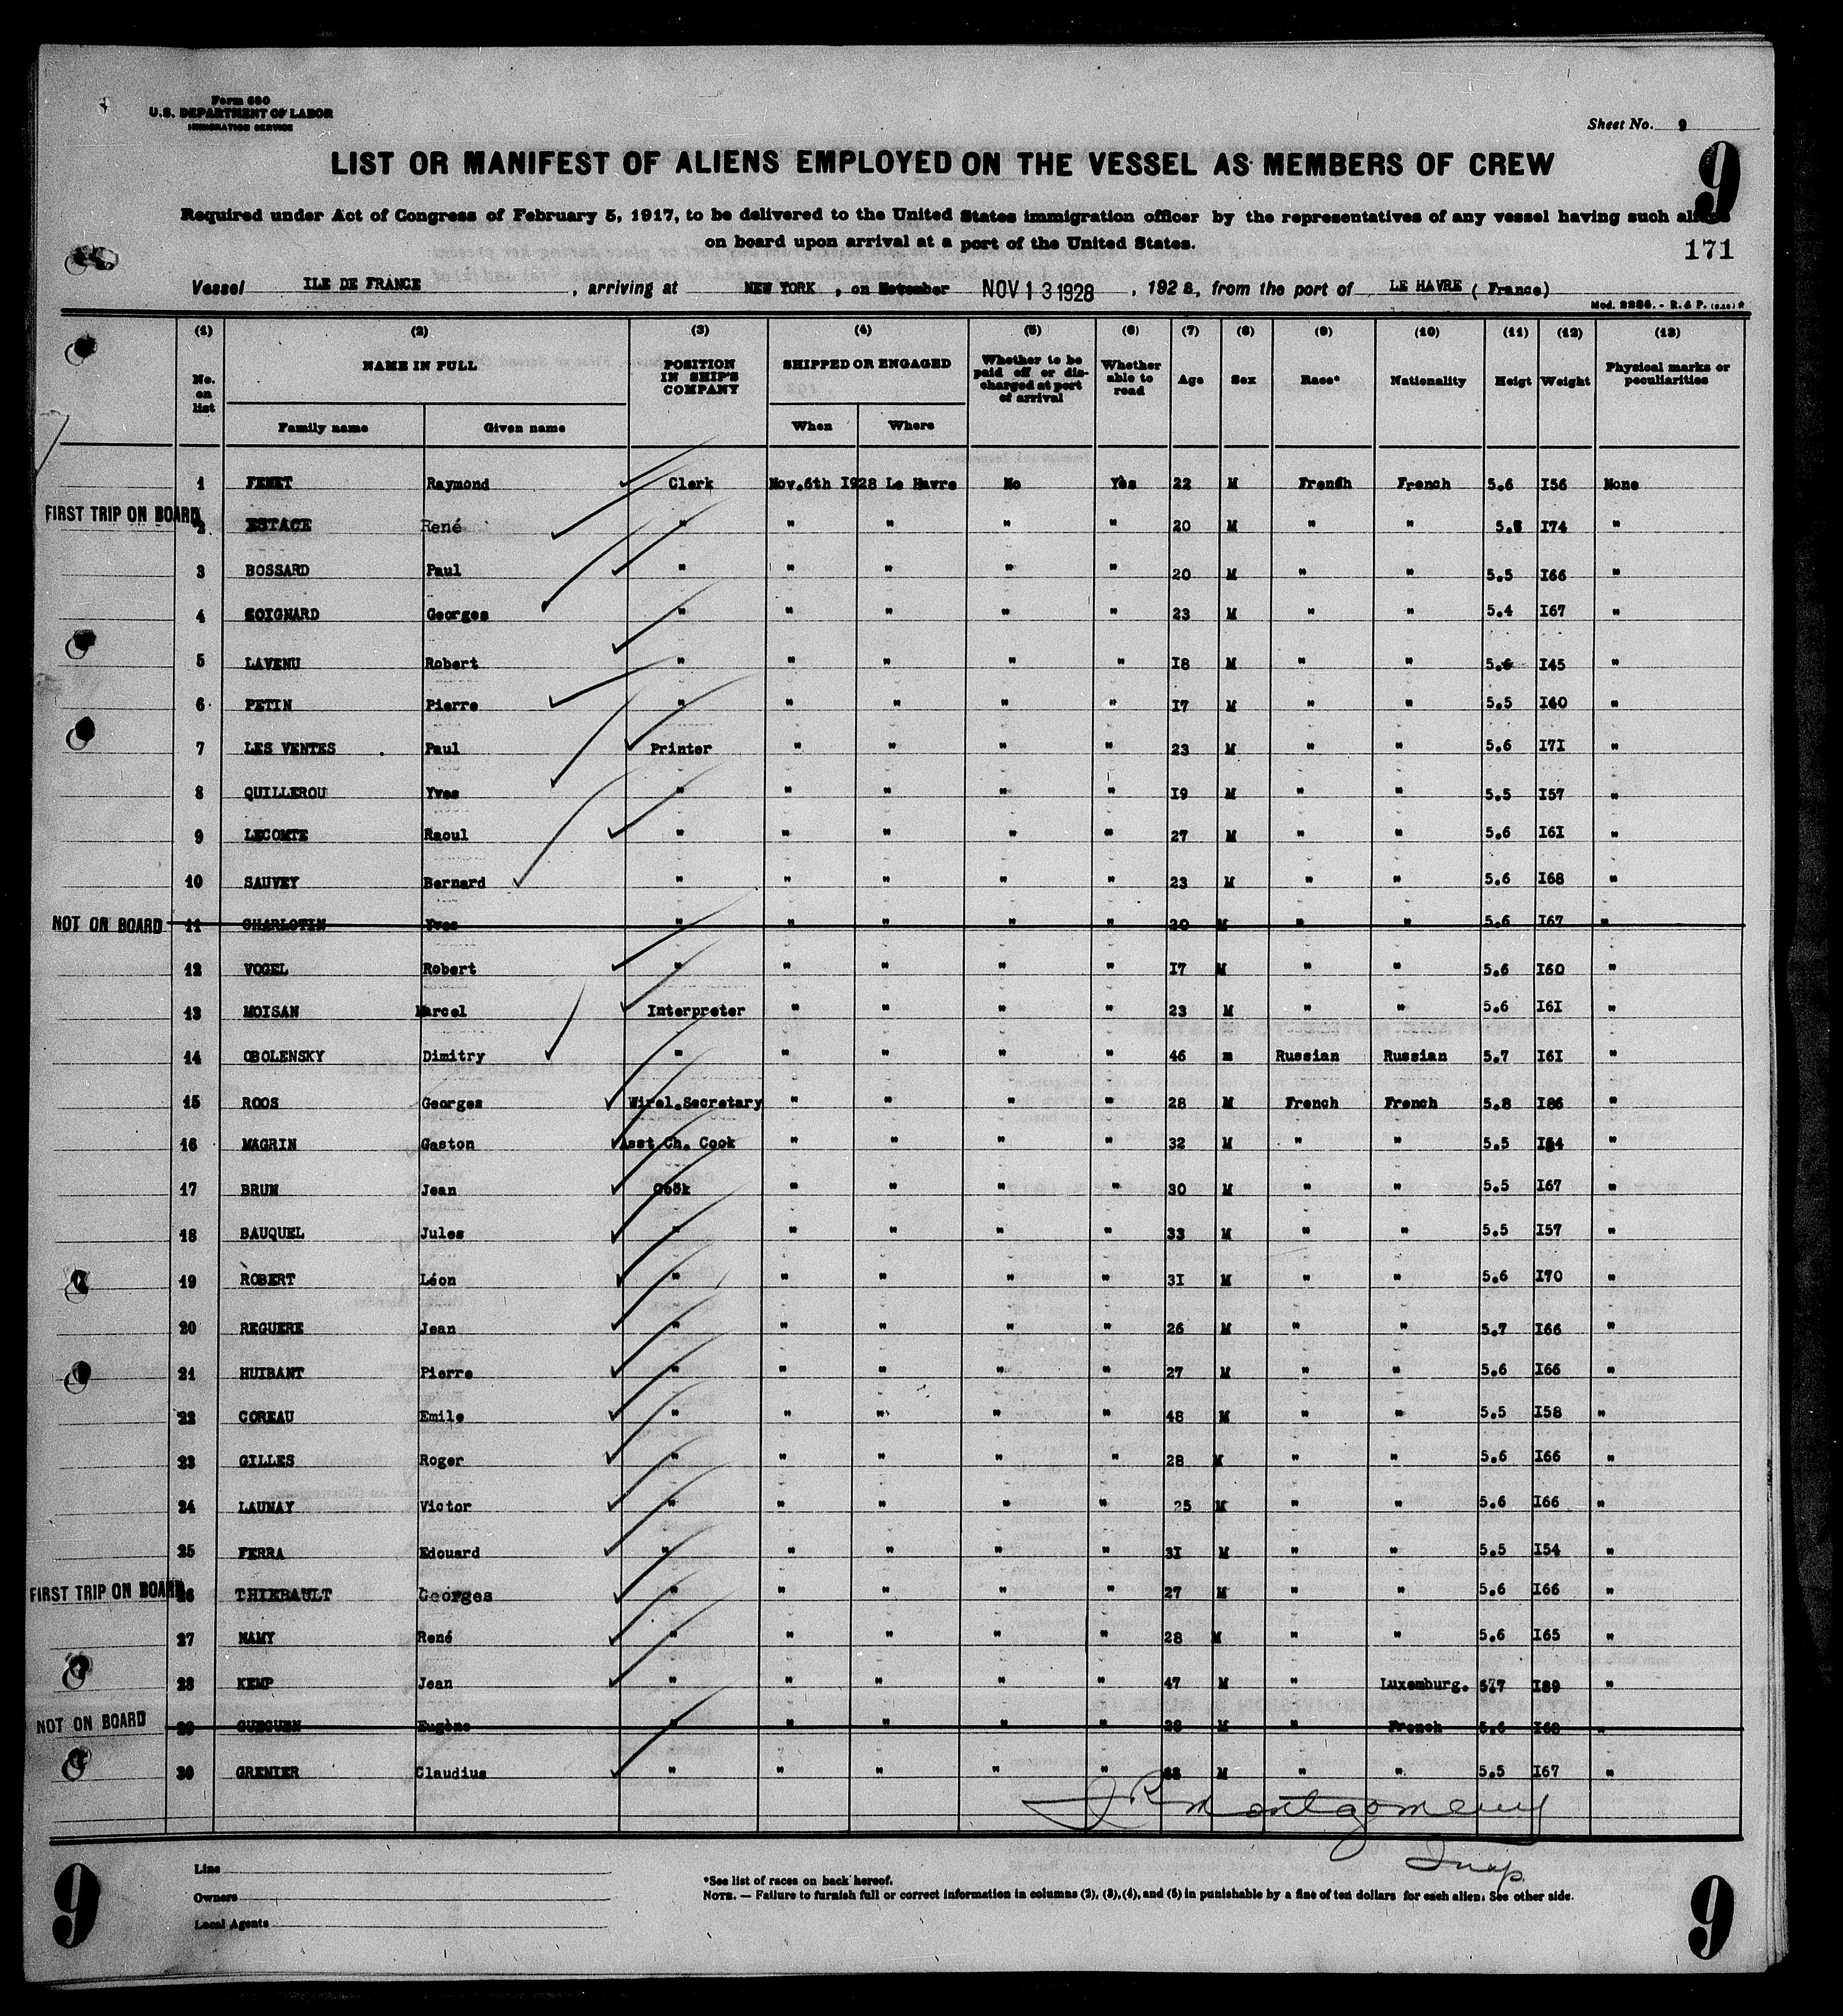 Form 680
U.S. DEPARTMENT OF LABOR
IMMIGRATION SERVICE
Sheet No. 9
LIST OR MANIFEST OF ALIENS EMPLOYED ON THE VESSEL AS MEMBERS OF CREW
9
Required under Act of Congress of February 5, 1917, to be delivered to the United States immigration officer by the representatives of any vessel having such aliens
on board upon arrival at a port of the United States.
171
Vessel ILE DE FRANCE, arriving at NEW YORK, on November NOV 13 1928, 1928, from the port of LE HAVRE (France)
Mod. 2286. - R. & P.
(1) (2) (3) (4) (5) (6) (7) (8) (9) (10) (11) (12) (13)
No. on list NAME IN FULL POSITION IN SHIP'S COMPANY SHIPPED OR ENGAGED Whether to be paid off or discharged at port of arrival Whether able to read Age Sex Race* Nationality Heigt Weight Physical marks or peculiarities
Family name Given name When Where
1 FEMET Raymond Clerk Nov.6th I928 Le Havre No Yes 22 M French French 5.6 I56 None
FIRST TRIP ON BOARD 2 ESTACE René " " " " " 20 M " " 5. I74 "
3 BOSSARD Paul " " " " " 20 M " " 5.5 I66 "
4 GOIGNARD Georges " " " " " 23 M " " 5.4 I67 "
5 LAVENU Robert " " " " " I8 M " " 5.6 I45 "
6 PETIN Pierre " " " " " I7 M " " 5.5 I40 "
7 LES VENTES Paul Printer " " " " 23 M " " 5.6 I7I "
8 QUILLEROU Yves " " " " " I9 M " " 5.5 I57 "
9 LECOMTE Raoul " " " " " 27 M " " 5.6 I6I "
10 SAUVEY Bernard " " " " " 23 M " " 5.6 I68 "
NOT ON BOARD 11 CHARLOTIN Yves " " " " " 20 M " " 5.6 I67 "
12 VOGEL Robert " " " " " I7 M " " 5.6 I60 "
13 MOISAN Marcel Interpreter " " " " 23 M " " 5.6 I6I "
14 OBOLENSKY Dimitry " " " " " 46 m Russian Russian 5.7 I6I "
15 ROOS Georges Wirel.Secretary " " " " 28 M French French 5.8 I86 "
16 MAGRIN Gaston Asst Ch. Cook " " " " 32 M " " 5.5 I54 "
17 BRUN Jean Cook " " " " 30 M " " 5.5 I67 "
18 BAUQUEL Jules " " " " " 33 M " " 5.5 I57 "
19 ROBERT Léon " " " " " 3I M " " 5.6 I70 "
20 REGUERE Jean " " " " " 26 M " " 5.7 I66 "
21 HUIBANT Pierre " " " " " 27 M " " 5.6 I66 "
22 COREAU Emile " " " " " 48 M " " 5.5 I58 "
23 GILLES Roger " " " " " 28 M " " 5.6 I66 "
24 LAUNAY Victor " " " " " 25 M " " 5.6 I66 "
25 FERRA Edouard " " " " " 3I M " " 5.5 I54 "
FIRST TRIP ON BOARD 26 THIEBAULT Georges " " " " " 27 M " " 5.6 I66 "
27 NAMY René " " " " " 28 M " " 5.6 I65 "
28 KEMP Jean " " " " " 47 M " Luxemburg. 5.7 I89 "
NOT ON BOARD 29 GUEGUEN Eugène " " " " " 28 M " French 5.6 I68 "
30 GRENIER Claudius " " " " " M " " 5.5 I67 "
J R Montgomery
Insp
9
Line
Owners
Local Agents
*See list of races on back hereof.
NOTE. — Failure to furnish full or correct information in columns (2), (3), (4), and (5) in punishable by a fine of ten dollars for each alien. See other side.
9